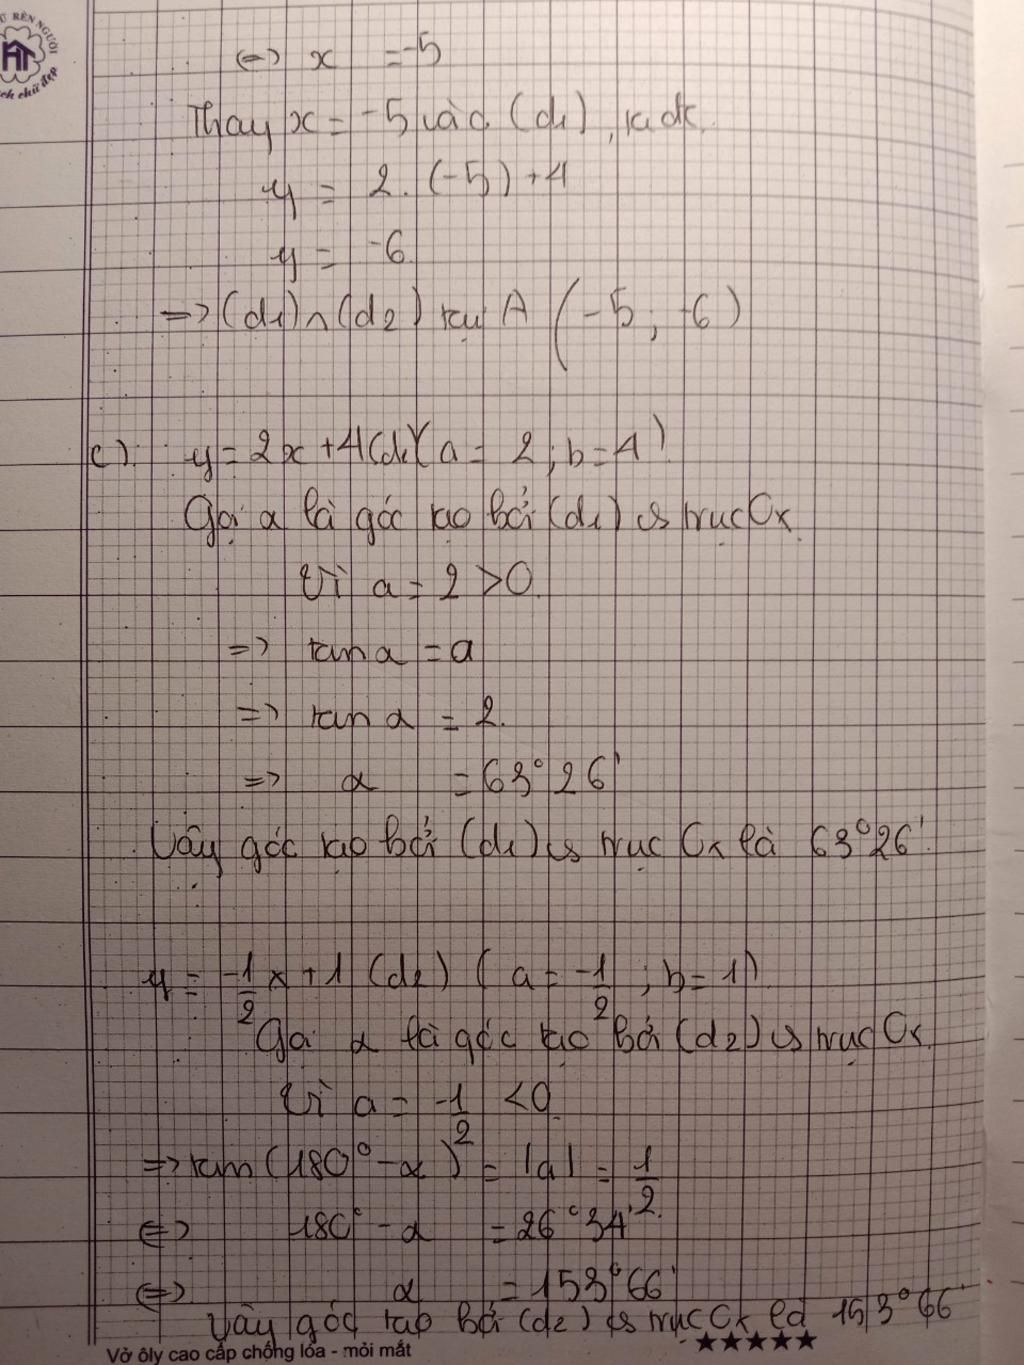 Ữ RÈN NGƯỜI
HT
ch chữ đẹp
<=> x = -5
Thay x = -5 vào (d₁), ta đc
y = 2.(-5)+4
y = -6
=> (d₁)∩(d₂) tại A (-5; -6)
c). y = 2x+4(d₁)(a = 2; b=4)
Gọi α là góc tạo bởi (d₁) vs trục Ox
Vì a = 2 > 0.
=> tan α = a
=> tan α = 2.
=> α = 63°26'
Vậy góc tạo bởi (d₁) vs trục Ox là 63°26'.
y = -1/2 x+1 (d₂) (a = -1/2; b=1)
Gọi α là góc tạo bởi (d₂) vs trục Ox
Vì a = -1/2 < 0
=> tan (180° - α) = |a| = 1/2.
<=> 180° - α = 26°34'
<=> α = 153°66'
Vậy góc tạo bởi (d₂) vs trục Ox là 153°66'
Vở ôly cao cấp chống lóa - mỏi mắt ★★★★★